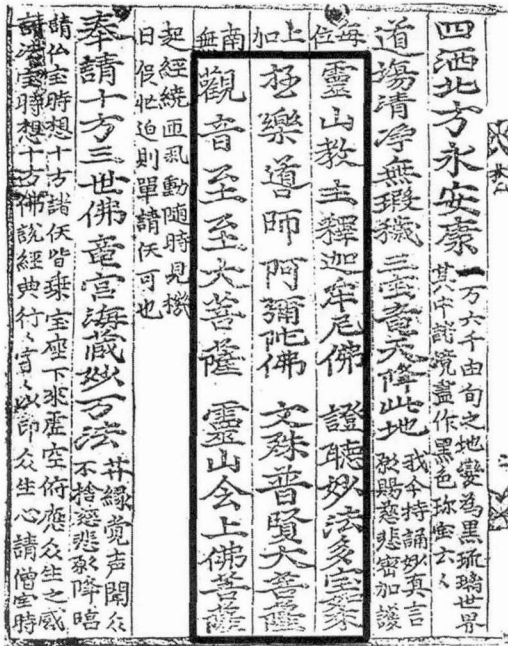 四洒北方永安康
一万六千由旬之地變為黒琉璃世界
其中諸境盡作黒色珎宝云〻
道塲清净無瑕穢 三宝竜天降此地
我今持誦妙真言
賜慈悲密加護
每位上加南無
靈山教主釋迦牟尼佛 證聽妙法多宝
极樂導師阿彌陀佛 文殊普賢大菩薩
觀音至至大菩薩 靈山会上佛菩薩
起經繞匝動随時見機
日侵忙迫則單請仸可也
奉請十方三世佛 竜宫海藏妙万法
并緣覚声聞众
不捨慈悲降臨
請仏宝時想十方諸仸皆乗宝座下來虚空俯應众生之感
請法宝時想十方佛說經典行〻字〻以印众生心請僧宝時